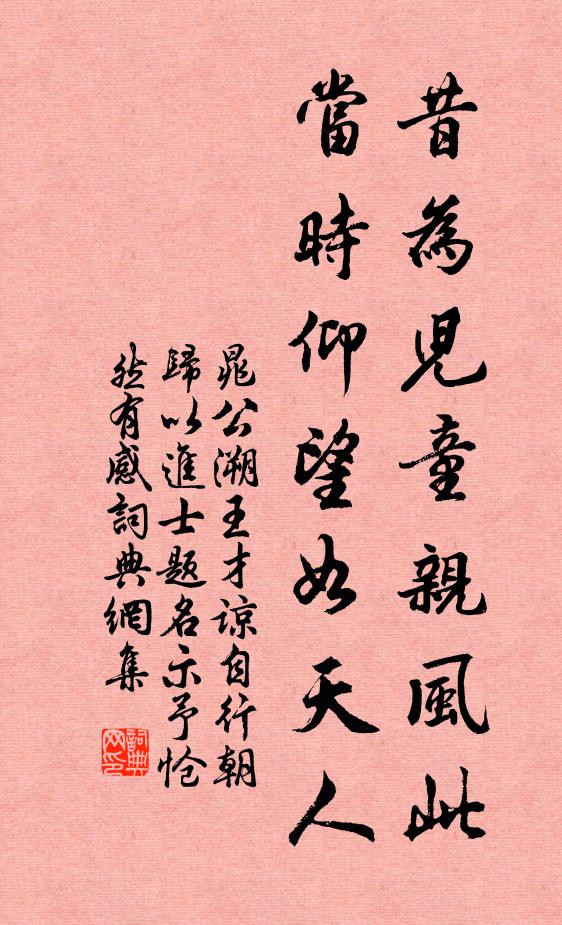 昔為兒童親風此
當時仰望如天人
晁公溯王才諒自行朝
歸以進士題名示予怆
然有感詞典網集
詞典网印